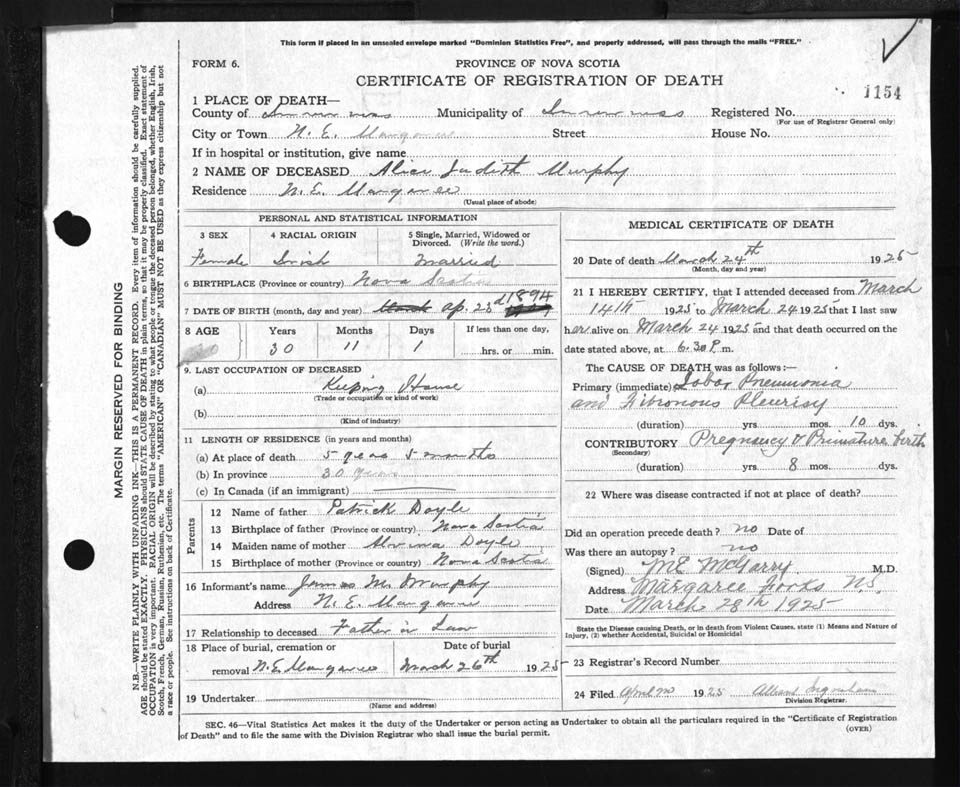 This form if placed in an unsealed envelope marked "Dominion Statistics Free", and properly addressed, will pass through the mails "FREE."
FORM 6.
PROVINCE OF NOVA SCOTIA
CERTIFICATE OF REGISTRATION OF DEATH
1154
1 PLACE OF DEATH—
County of Inverness Municipality of Inverness Registered No.
(For use of Registrar General only)
City or Town N. E. Margaree Street House No.
If in hospital or institution, give name
2 NAME OF DECEASED Alice Judith Murphy
Residence N. E. Margaree
(Usual place of abode)
PERSONAL AND STATISTICAL INFORMATION
3 SEX 4 RACIAL ORIGIN 5 Single, Married, Widowed or Divorced. (Write the word.)
Female Irish Married
6 BIRTHPLACE (Province or country) Nova Scotia
7 DATE OF BIRTH (month, day and year) ap. 23d 1894
8 AGE Years Months Days If less than one day,
30 30 11 1 hrs. or min.
9. LAST OCCUPATION OF DECEASED
(a) Keeping House
(Trade or occupation or kind of work)
(b)
(Kind of industry)
11 LENGTH OF RESIDENCE (in years and months)
(a) At place of death 5 years 5 months
(b) In province 30 years
(c) In Canada (if an immigrant)
Parents
12 Name of father Patrick Doyle
13 Birthplace of father (Province or country) Nova Scotia
14 Maiden name of mother Doyle
15 Birthplace of mother (Province or country) Nova Scotia
16 Informant's name James M. Murphy
Address N. E. Margaree
17 Relationship to deceased Father in Law
18 Place of burial, cremation or removal N. E. Margaree
Date of burial March 26th 1925
19 Undertaker
(Name and address)
MEDICAL CERTIFICATE OF DEATH
20 Date of death March 24th 1925
(Month, day and year)
21 I HEREBY CERTIFY, that I attended deceased from March
14th 1925 to March 24 1925 that I last saw
her alive on March 24 1925 and that death occurred on the
date stated above, at 6.30 P. m.
The CAUSE OF DEATH was as follows:—
Primary (immediate) Lobar Pneumonia
and Fibronous Pleurisy
(duration) yrs. mos. 10 dys.
CONTRIBUTORY Pregnancy & Premature birth
(Secondary)
(duration) yrs. 8 mos. dys.
22 Where was disease contracted if not at place of death?
Did an operation precede death? no Date of
Was there an autopsy? no
(Signed) M E McGarry M.D.
Address Margaree Forks N.S.
Date March 28th 1925
State the Disease causing Death, or in death from Violent Causes, state (1) Means and Nature of
Injury, (2) whether Accidental, Suicidal or Homicidal
23 Registrar's Record Number
24 Filed 1925
Division Registrar.
SEC. 46—Vital Statistics Act makes it the duty of the Undertaker or person acting as Undertaker to obtain all the particulars required in the "Certificate of Registration
of Death" and to file the same with the Division Registrar who shall issue the burial permit.
(OVER)
MARGIN RESERVED FOR BINDING
N.B.—WRITE PLAINLY WITH UNFADING INK—THIS IS A PERMANENT RECORD. Every item of information should be carefully supplied.
AGE should be stated EXACTLY. PHYSICIANS should STATE CAUSE OF DEATH in plain terms, so that it may be properly classified. Exact statement of
OCCUPATION is very important. RACIAL ORIGIN will be described by stating to what people or tongue the deceased person belonged, whether English, Irish,
Scotch, French, German, Russian, Ruthenian, etc. The terms "AMERICAN" OR "CANADIAN" MUST NOT BE USED as they express citizenship but not
a race or people. See instructions on back of Certificate.